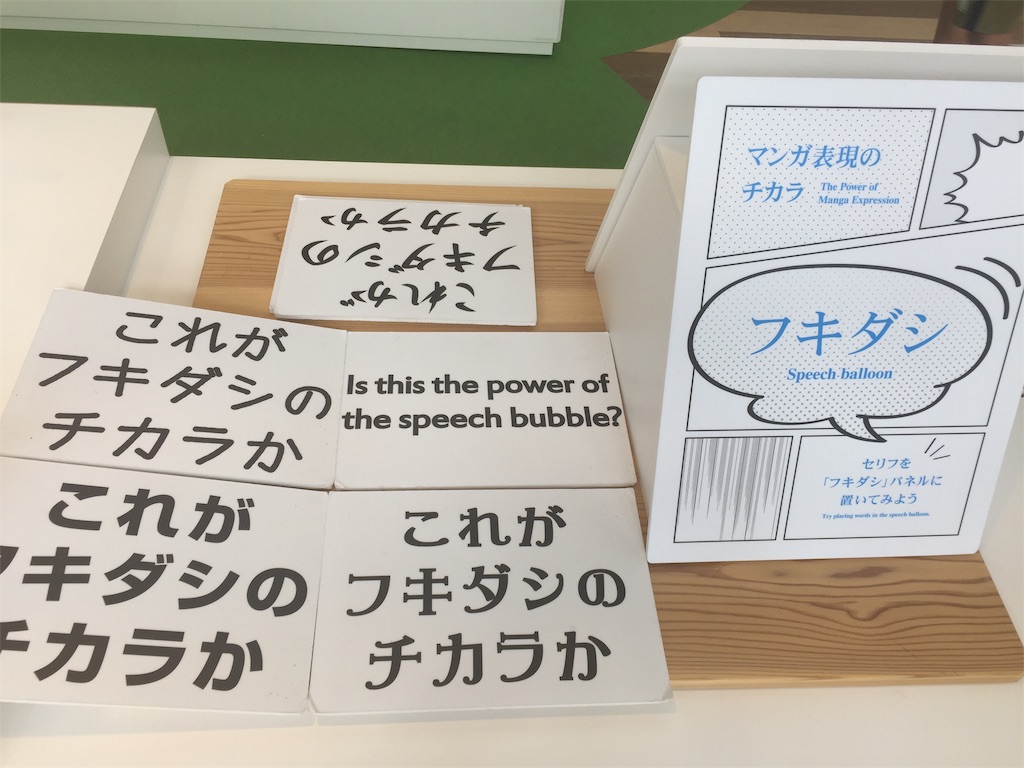 これが
フキダシの
チカラか
これが
フキダシの
チカラか
Is this the power of
the speech bubble?
これが
フキダシの
チカラか
これが
フキダシの
チカラか
マンガ表現の
チカラ
The Power of
Manga Expression
フキダシ
Speech balloon
セリフを
「フキダシ」パネルに
置いてみよう
Try placing words in the speech balloon.